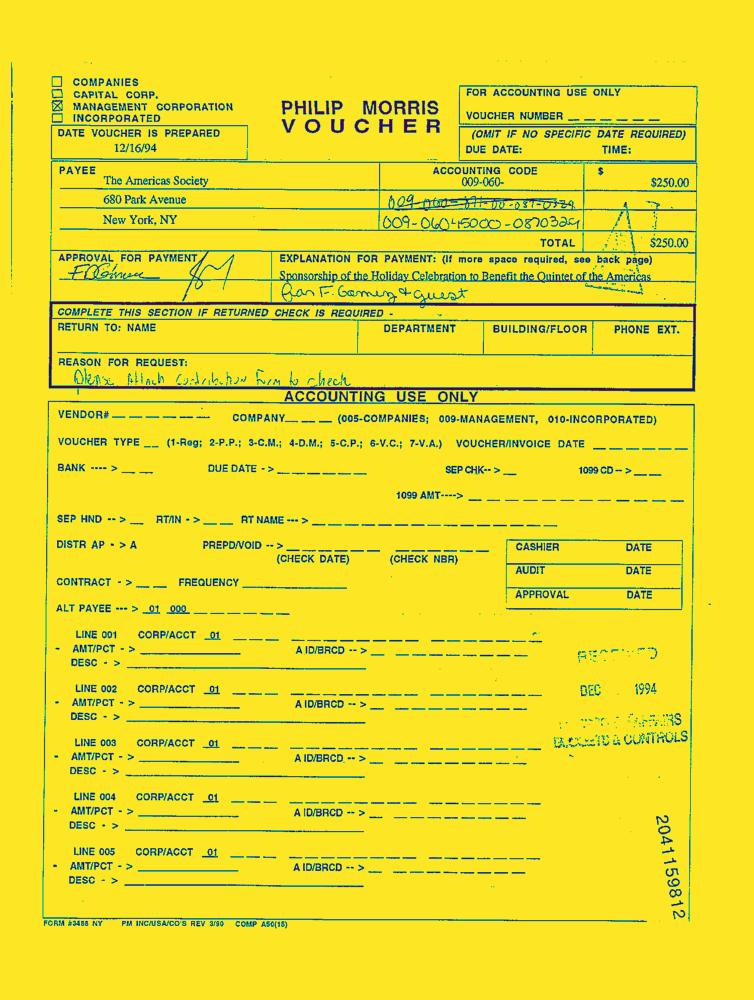 COMPANIES
CAPITAL CORP.
MANAGEMENT CORPORATION
INCORPORATED
PHILIP MORRIS
VOUCHER
FOR ACCOUNTING USE ONLY
VOUCHER NUMBER
DATE VOUCHER IS PREPARED
12/16/94
(OMIT IF NO SPECIFIC DATE REQUIRED)
DUE DATE: TIME:
PAYEE ACCOUNTING CODE $
The Americas Society 009-060- $250.00
680 Park Avenue
New York, NY 009-06045000-0870329
TOTAL $250.00
APPROVAL FOR PAYMENT EXPLANATION FOR PAYMENT: (If more space required, see back page)
Sponsorship of the Holiday Celebration to Benefit the Quintet of the Americas
F. Gomez + guest
COMPLETE THIS SECTION IF RETURNED CHECK IS REQUIRED -
RETURN TO: NAME DEPARTMENT BUILDING/FLOOR PHONE EXT.
REASON FOR REQUEST:
Please Attach Contribution Form to check
ACCOUNTING USE ONLY
VENDOR# COMPANY (005-COMPANIES; 009-MANAGEMENT, 010-INCORPORATED)
VOUCHER TYPE (1-Reg; 2-P.P.; 3-C.M.; 4-D.M.; 5-C.P.; 6-V.C.; 7-V.A.) VOUCHER/INVOICE DATE
BANK ---- > DUE DATE - > SEP CHK-- > 1099 CD -- >
1099 AMT---->
SEP HND -- > RT/IN - > RT NAME --- >
DISTR AP - > A PREPD/VOID -- >
(CHECK DATE) (CHECK NBR)
CASHIER DATE
AUDIT DATE
APPROVAL DATE
CONTRACT - > FREQUENCY
ALT PAYEE --- > 01 000
LINE 001 CORP/ACCT 01
- AMT/PCT - > A ID/BRCD -- >
DESC - >
RECEIVED
LINE 002 CORP/ACCT 01
- AMT/PCT - > A ID/BRCD -- >
DESC - >
DEC 1994
AFFAIRS
BUDGETS & CONTROLS
LINE 003 CORP/ACCT 01
- AMT/PCT - > A ID/BRCD -- >
DESC - >
LINE 004 CORP/ACCT 01
- AMT/PCT - > A ID/BRCD -- >
DESC - >
LINE 005 CORP/ACCT 01
- AMT/PCT - > A ID/BRCD -- >
DESC - >
2041159812
FORM #3488 NY PM INC/USA/CO'S REV 3/90 COMP A50(15)